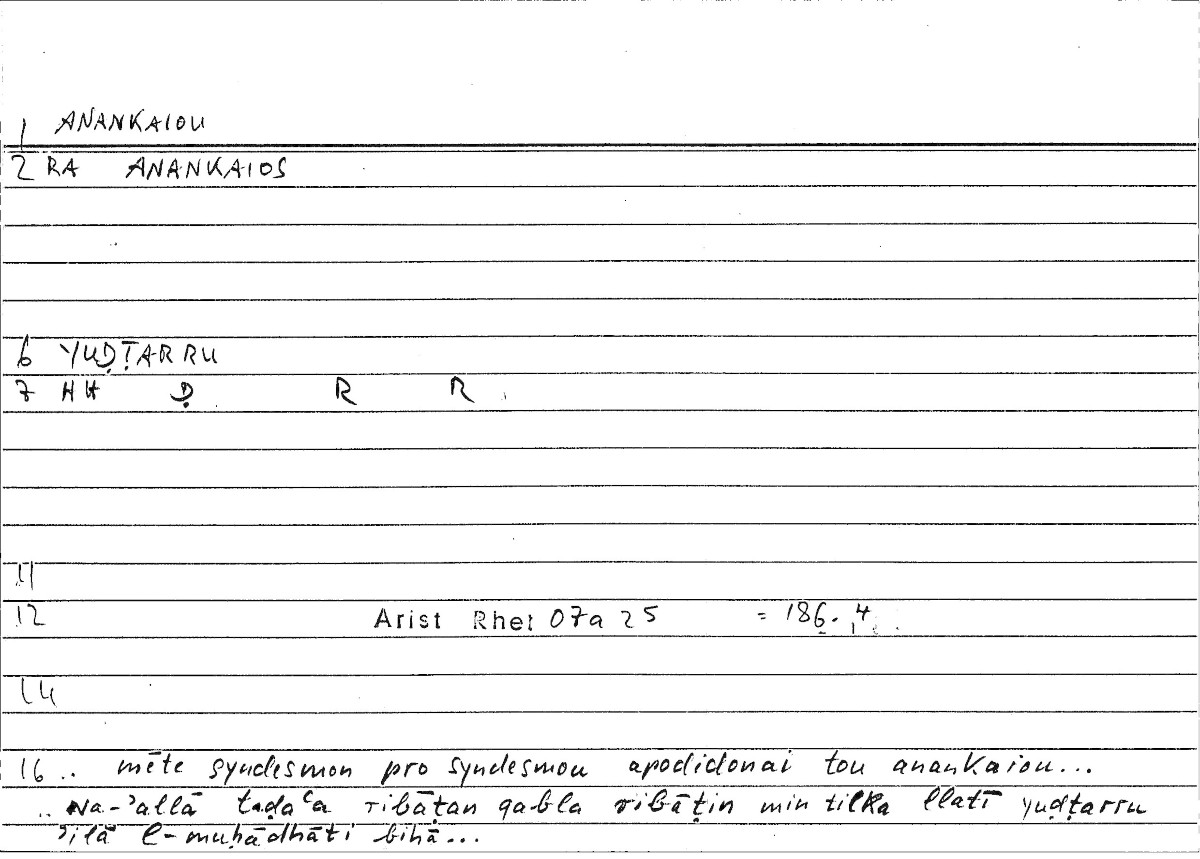 1 ANANKAIOU
2 RA ANANKAIOS
6 YUḌṬARRU
7 HH Ḍ R R
11
12 Arist Rhet 07a 25 = 186. 14
14
16 .. mēte syndesmon pro syndesmou apodidonai tou anankaiou...
.. wa-ʾallā taḍaʿa ribāṭan qabla ribāṭin min tilka llatī yuḍṭarru
ʾilā l-muḥādhāti bihā...